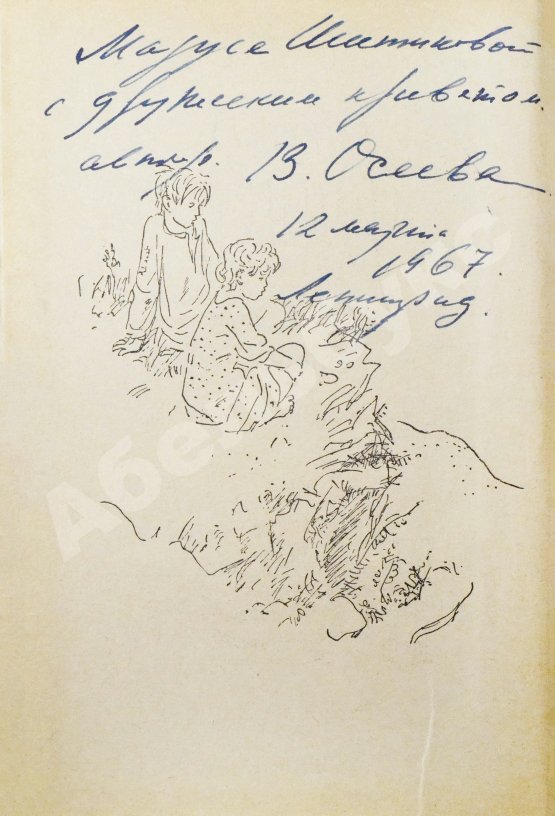 Марусе Шитиковой
с дружеским приветом.
автор. В. Осеева
12 марта
1967.
Ленинград.